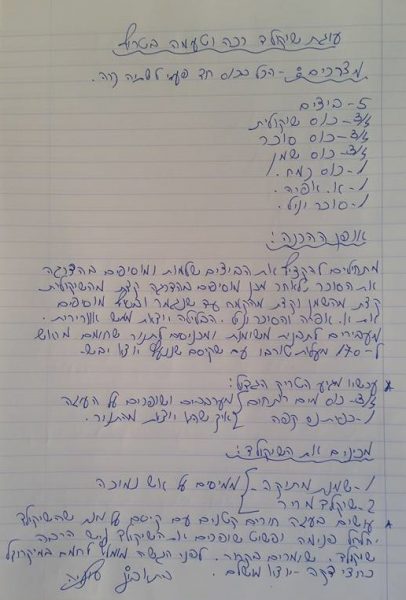 עוגת שוקולד רכה וטעימה בטירוף
מצרכים: - הכל בכוס חד פעמי לשתיה קרה.
5 - ביצים
3/4 - כוס שוקולית
3/4 - כוס סוכר
3/4 - כוס שמן
1 - כוס קמח.
1 - א. אפיה.
1 - סוכר וניל.
אופן ההכנה:
מתחילים להקציף את הביצים שלמות ומוסיפים בהדרגה
את הסוכר לאחר מכן מוסיפים בהדרגה קצת מהשוקולית
קצת מהשמן וקצת מהקמח עד שנגמר ובסוף מוספים
את א. אפיה והסוכר וניל. הבלילה יוצאת ממש אוורירית.
מעבירים לתבנית משומנת ומכניסים לתנור שחומם מראש
ל-170 מעלות טורבו עד שקיסם שננעץ יוצא יבש.
עכשיו מגיע הטריק הגדול:
3/4 - כוס מים רותחים } מערבבים ושופכים על העוגה
1 - כפית נס קפה } איך שהיא יוצאת מהתנור.
מכינים את השוקולד:
1 - שמנת מתוקה } ממיסים על אש נמוכה
2 - שוקולד מריר
עושים בעוגה חורים קטנים עם קיסם על מנת שהשוקולד
יחלחל פנימה ופשוט שופכים את השוקולד יש הרבה
שוקולד. שומרים בקירור. לפני הגשה מומלץ לחמם במיקרוגל
כחצי דקה - יוצא מושלם. בתאבון